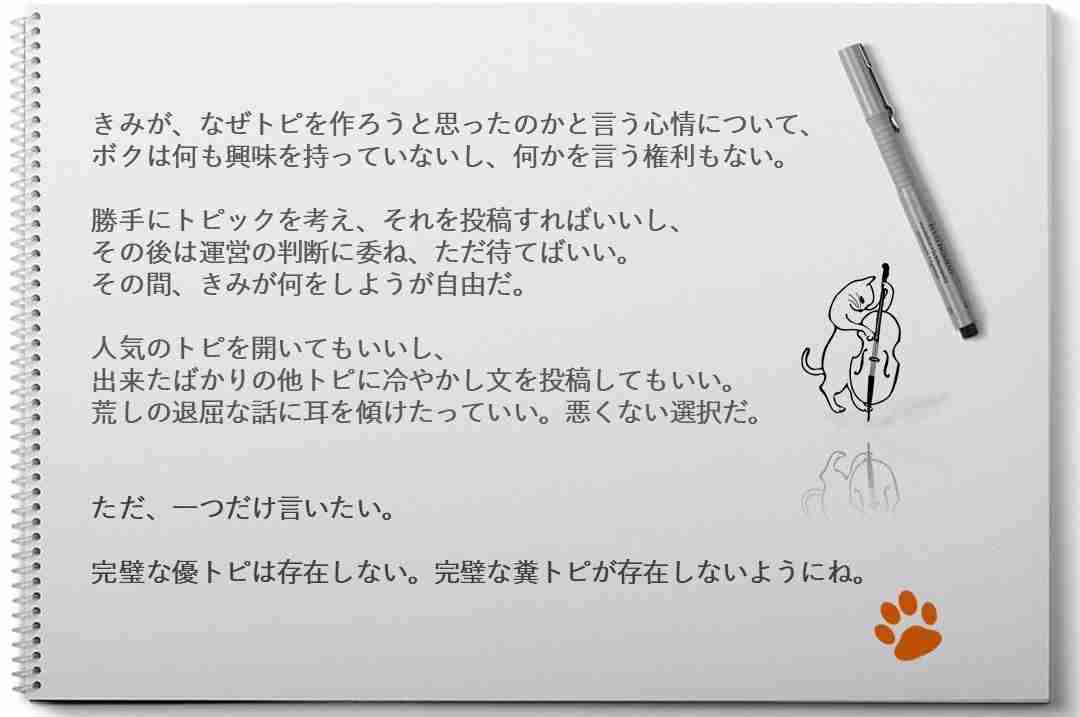 きみが、なぜトピを作ろうと思ったのかと言う心情について、
ボクは何も興味を持っていないし、何かを言う権利もない。
勝手にトピックを考え、それを投稿すればいいし、
その後は運営の判断に委ね、ただ待てばいい。
その間、きみが何をしようが自由だ。
人気のトピを開いてもいいし、
出来たばかりの他トピに冷やかし文を投稿してもいい。
荒しの退屈な話に耳を傾けたっていい。悪くない選択だ。
ただ、一つだけ言いたい。
完璧な優トピは存在しない。完璧な糞トピが存在しないようにね。